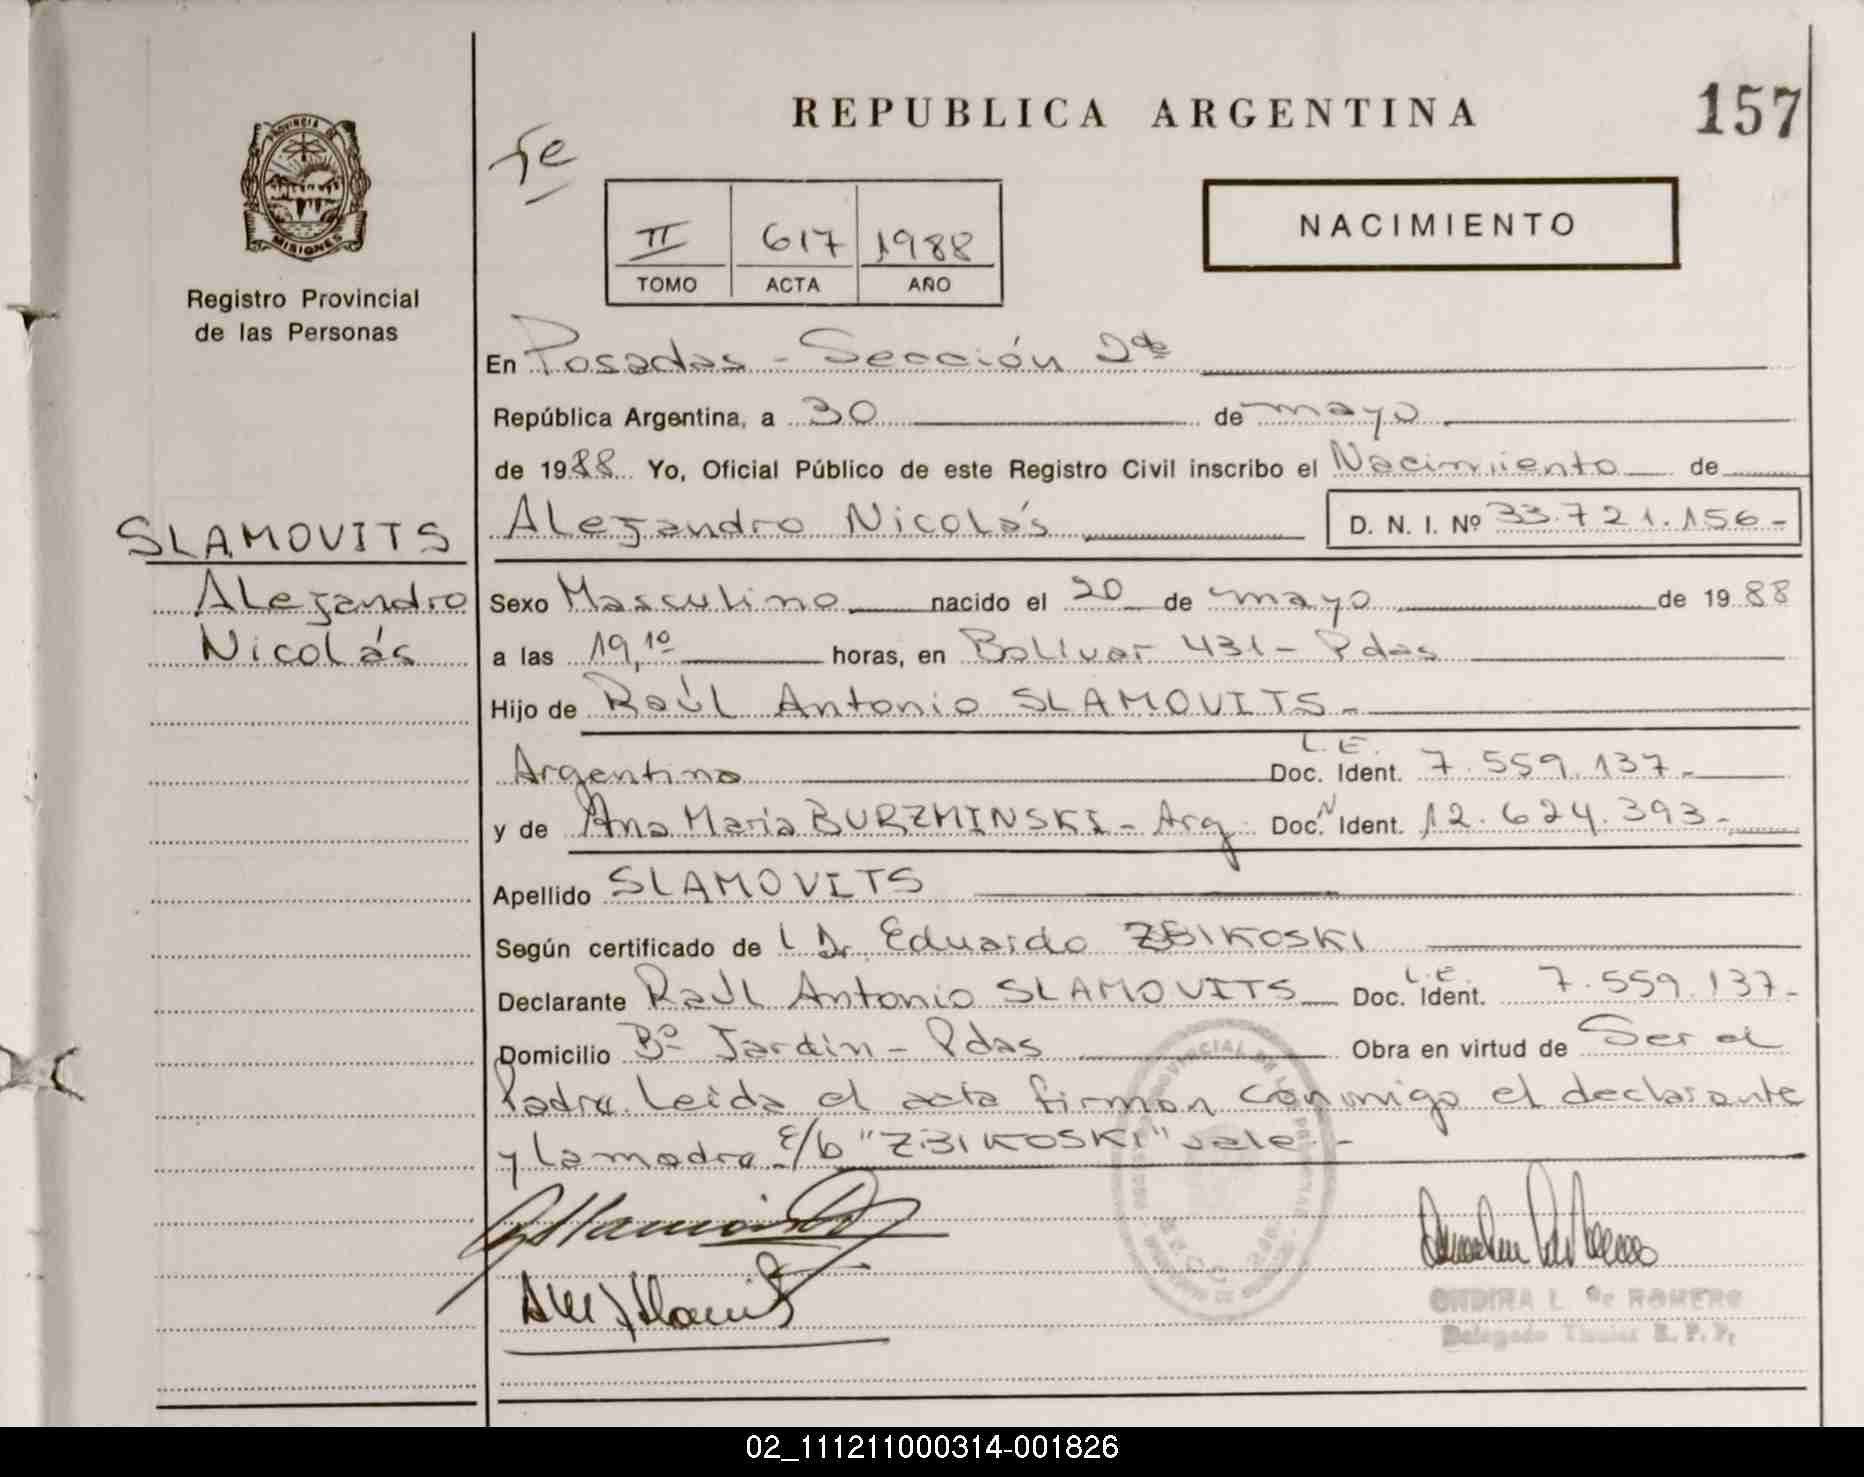 REPUBLICA ARGENTINA
157
PROVINCIA DE
MISIONES
Registro Provincial
de las Personas
II 617 1988
TOMO ACTA AÑO
NACIMIENTO
En Posadas - Sección 2da
República Argentina, a 30 de mayo
de 1988 Yo, Oficial Público de este Registro Civil inscribo el Nacimiento de
SLAMOVITS
Alejandro
Nicolás
Alejandro Nicolás D. N. I. Nº 33.721.156-
Sexo Masculino nacido el 20 de mayo de 1988
a las 19,10 horas, en Bolivar 431 - Pdas
Hijo de Raúl Antonio SLAMOVITS -
Argentino L.E. Doc. Ident. 7.559.137-
y de Ana Maria BURZMINSKI - Arg. Doc. N Ident. 12.624.393-
Apellido SLAMOVITS
Según certificado de l Dr. Eduardo ZBIKOSKI
Declarante Raúl Antonio SLAMOVITS Doc. L.E. Ident. 7.559.137-
Domicilio Bº Jardín - Pdas Obra en virtud de Ser el
Padre. Leída el acta firman conmigo el declarante
y la madre. E/b "ZBIKOSKI" vale. -
ONDINA L. de ROMERO
Delegado Titular R. P. P.
02_111211000314-001826